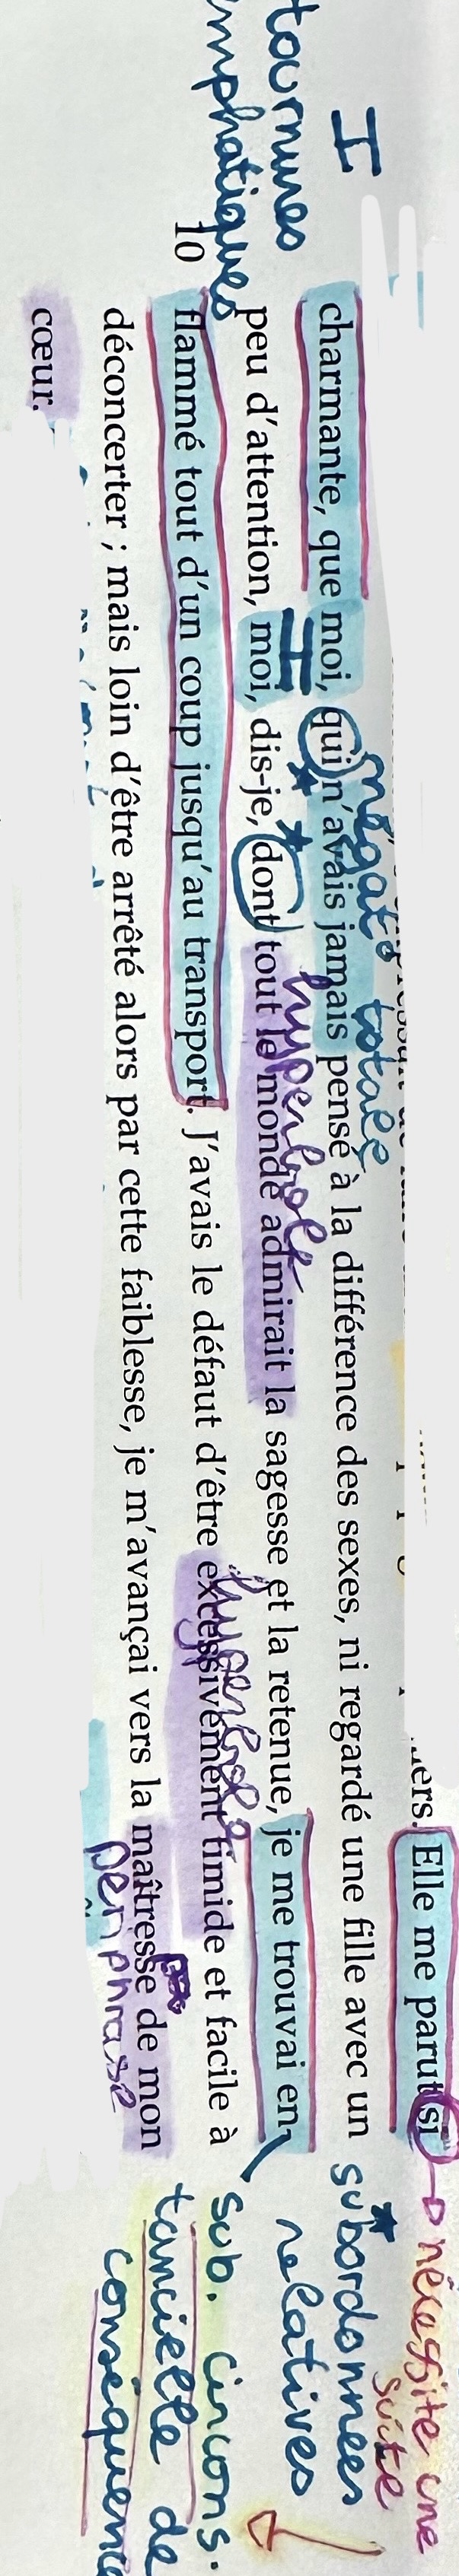 Elle me parut si
charmante, que moi, qui n'avais jamais pensé à la différence des sexes, ni regardé une fille avec un
peu d'attention, moi, dis-je, dont tout le monde admirait la sagesse et la retenue, je me trouvai en-
10 flammé tout d'un coup jusqu'au transport. J'avais le défaut d'être excessivement timide et facile à
déconcerter ; mais loin d'être arrêté alors par cette faiblesse, je m'avançai vers la maîtresse de mon
cœur.
I
tournures
emphatiques
négat° totale
hyperbole
hyperbole
périphrase
nécessite une
suite
subordonnées
relatives
sub. circons.
tancielle de
conséquence